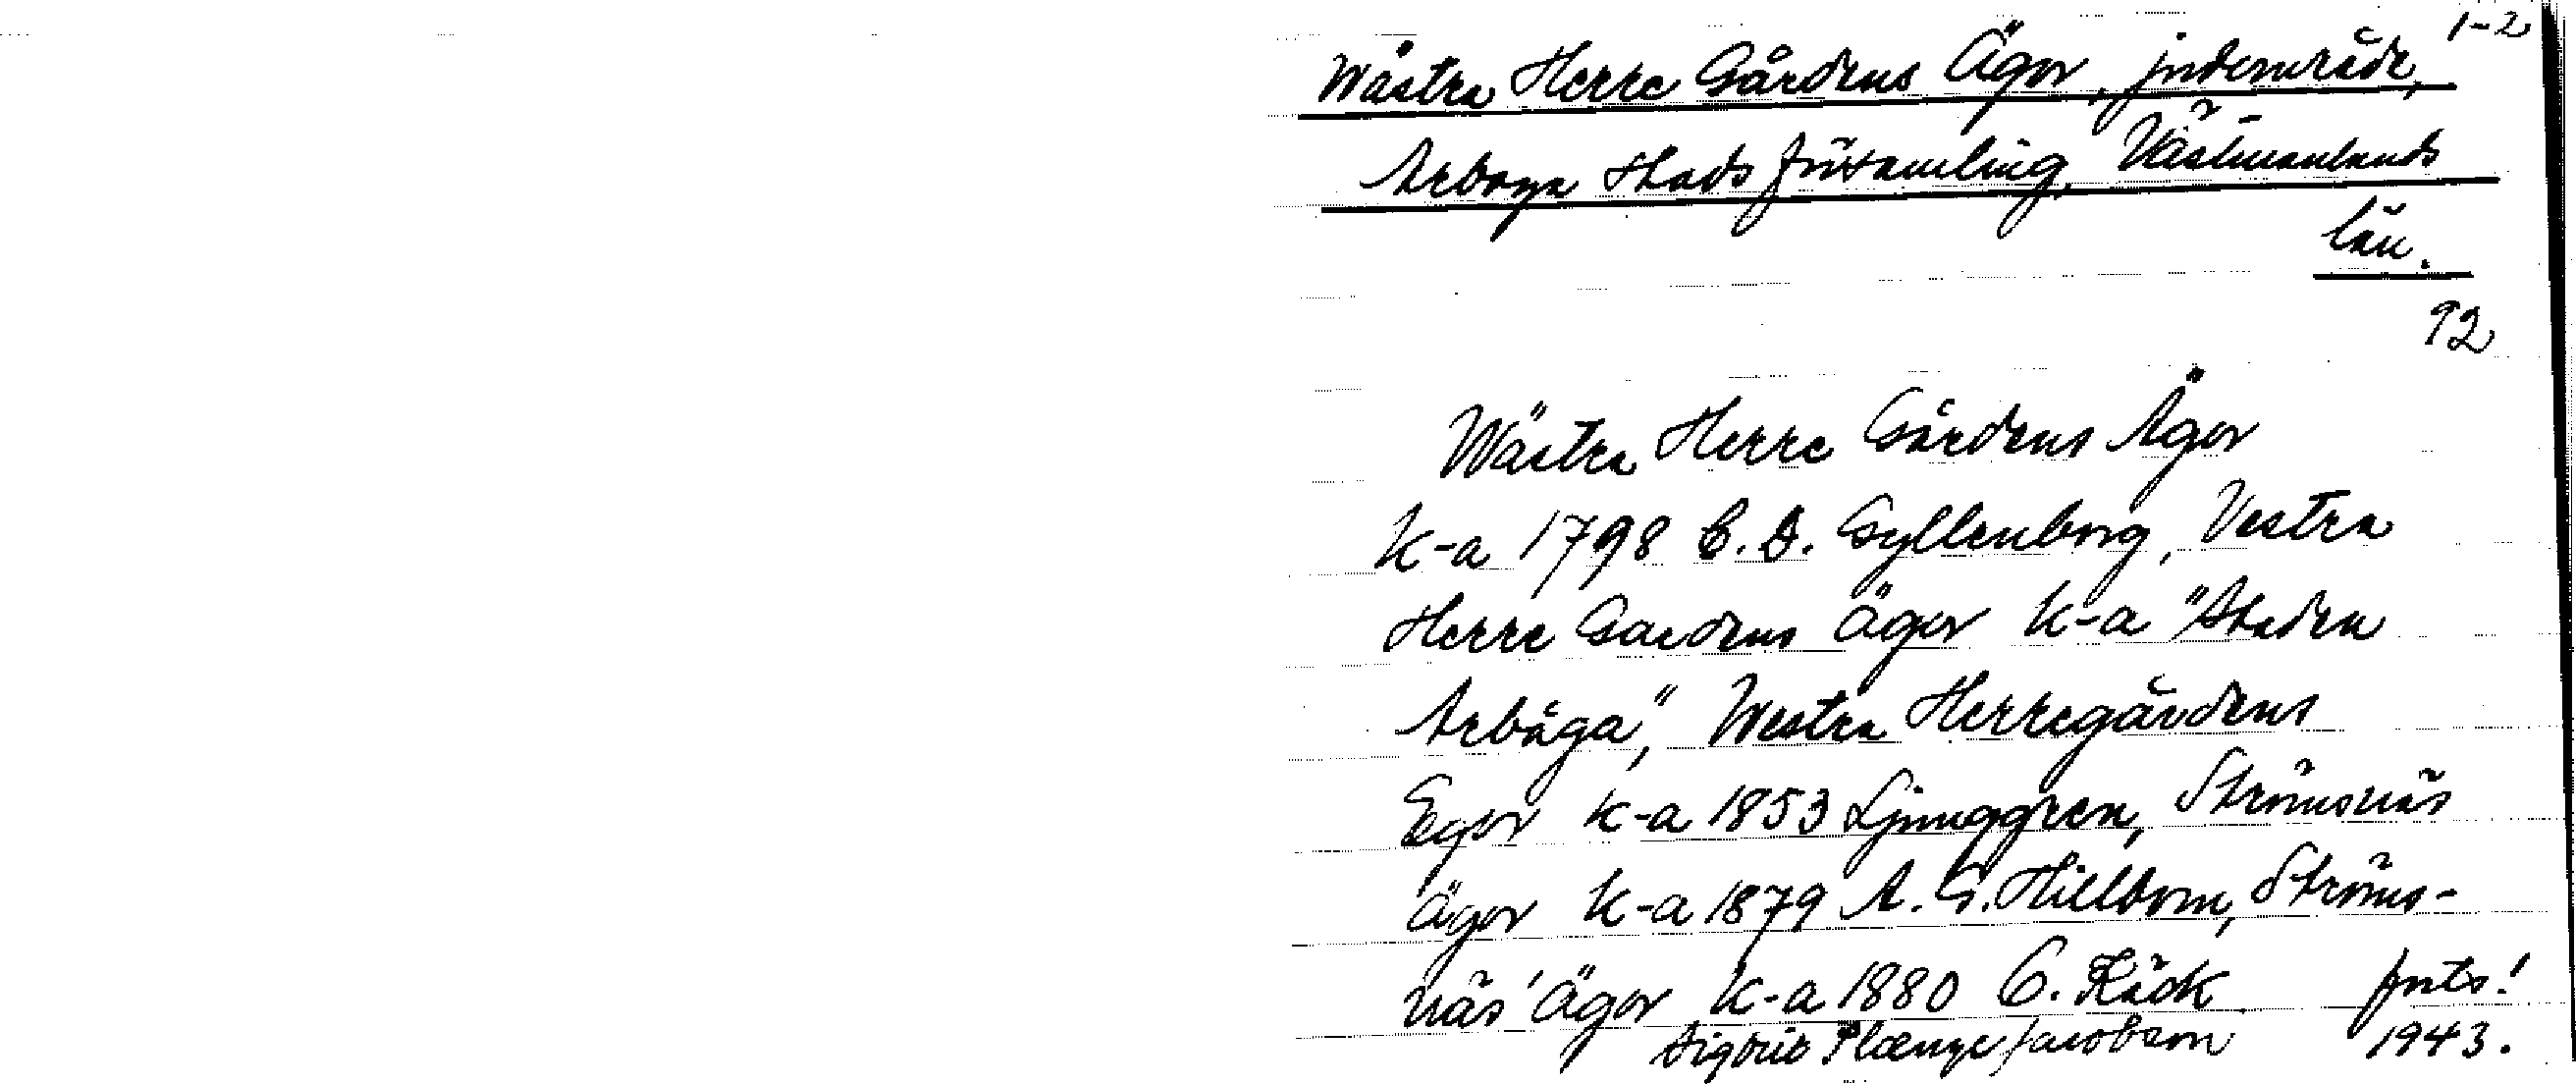 1-2
Wästra Herre Gårdens Ägor, jordområde,
Arboga stadsförsamling, Västmanlands
län.
92
Wästra Herre Gårdens Ägor
K-a 1798 C. D. Gyllenborg, Vestra
Herre Gardens Ägor K-a "Staden
Arbåga", Westra Herregårdens
Egor K-a 1853 Ljunggren, Strömsnäs
Ägor K-a 1879 A. G. Hillbom, Ströms-
näs' Ägor K-a 1880 C. Käck forts!
Sigbrit Plænge Jacobson 1943.